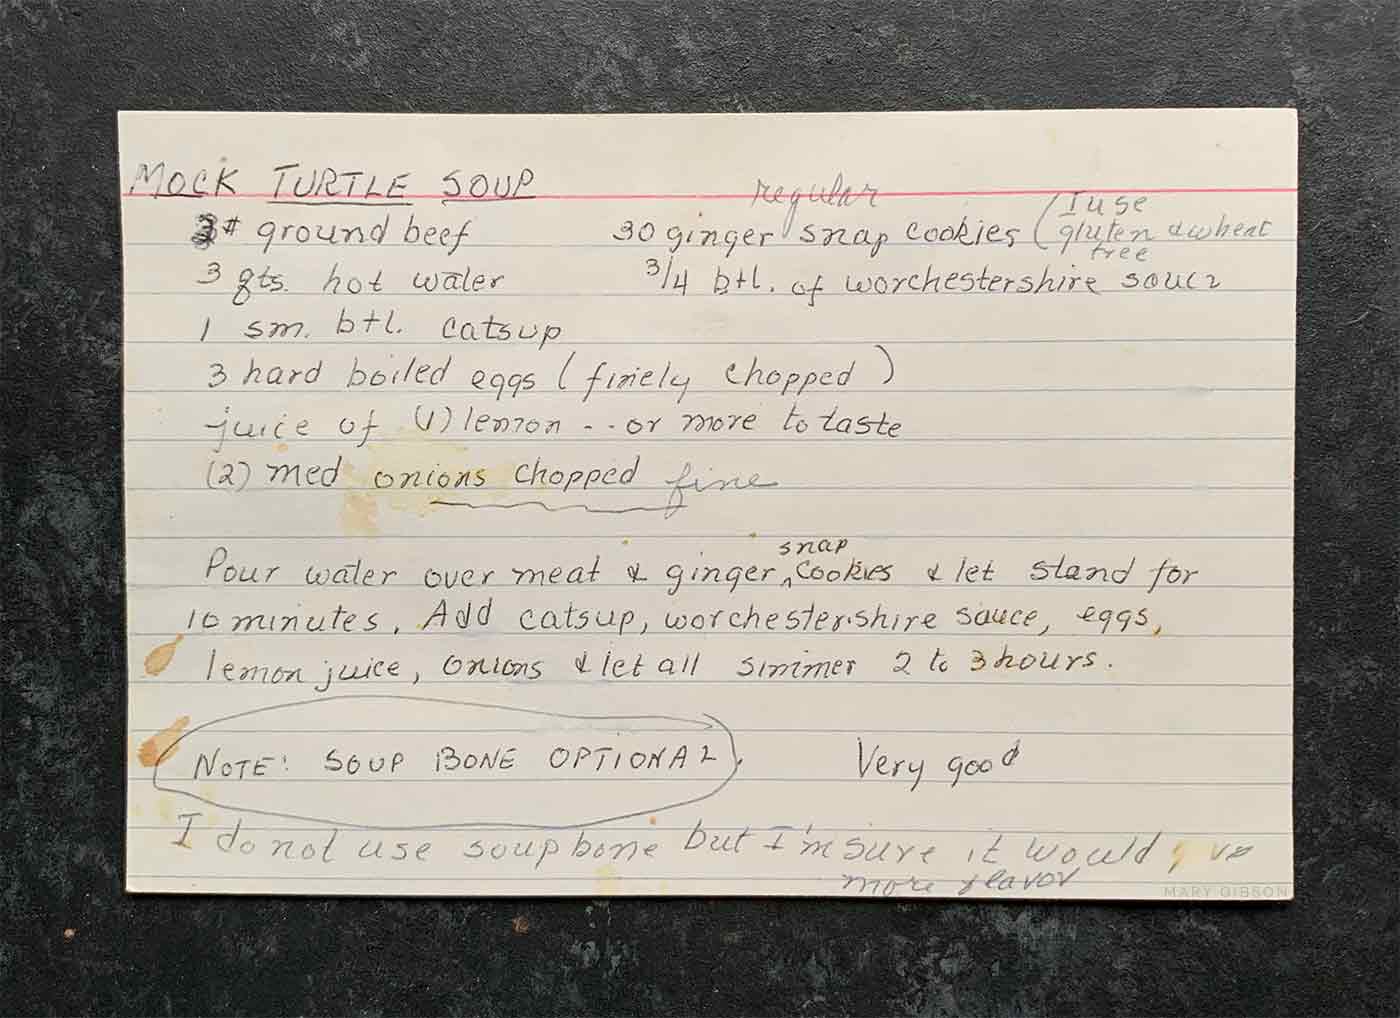 MOCK TURTLE SOUP
3# ground beef
3 qts. hot water
1 sm. btl. catsup
3 hard boiled eggs (finely chopped)
juice of (1) lemon -- or more to taste
(2) med onions chopped fine
30 ginger regular snap cookies (I use
gluten & wheat
free
3/4 btl. of worchestershire souce
Pour water over meat & ginger snap cookies & let stand for
10 minutes. Add catsup, worchestershire sauce, eggs,
lemon juice, onions & let all simmer 2 to 3 hours.
NOTE: SOUP BONE OPTIONAL.
Very good
I do not use soup bone but I'm sure it would
more flavor
MARY GIBSON